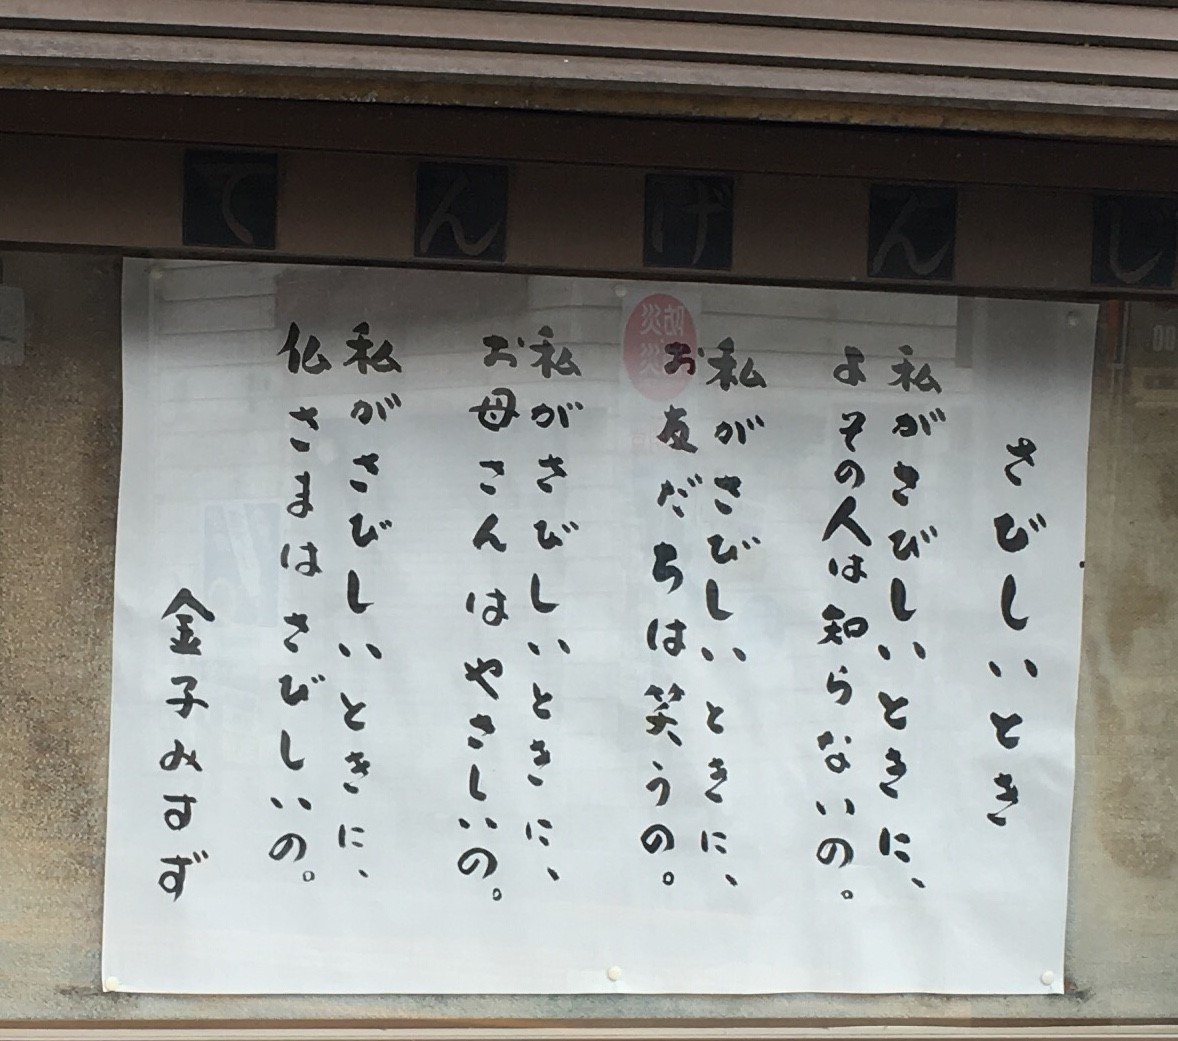 てんげんじ
さびしいとき
私がさびしいときに、
よその人は知らないの。
私がさびしいときに、
お友だちは笑うの。
私がさびしいときに、
お母さんはやさしいの。
私がさびしいときに、
仏さまはさびしいの。
金子みすず